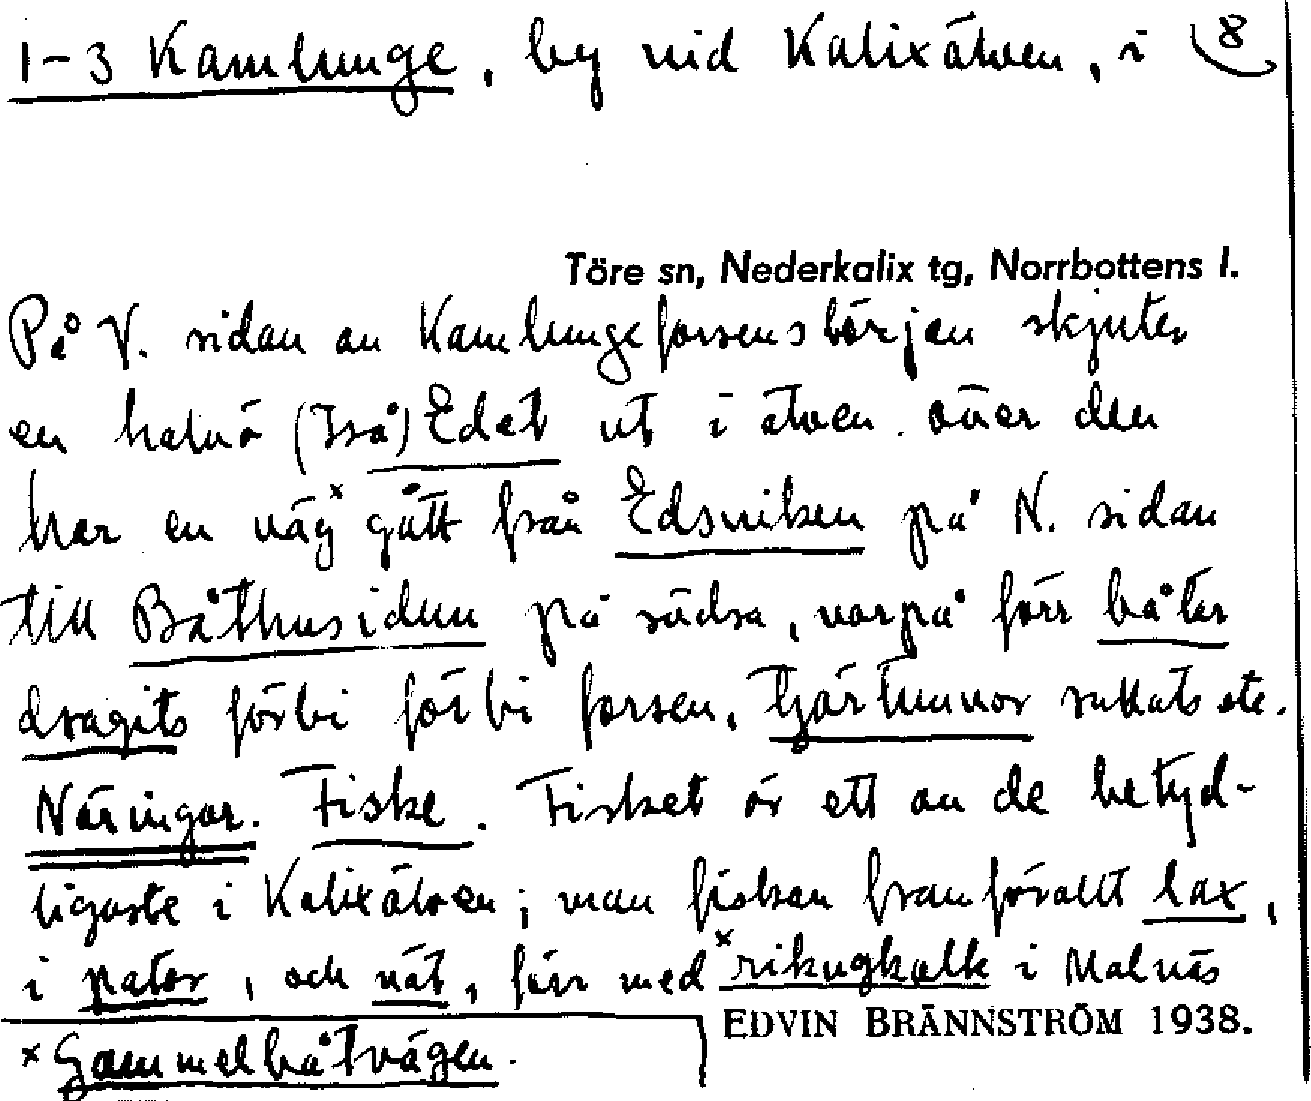 1-3 Kamlunge, by vid Kalixälven, i 8
Töre sn, Nederkalix tg, Norrbottens l.
På V. sidan av Kamlungeforsens början skjuter
en halvö Edet ut i älven. över den
har en väg× gått från Edsviken på N. sidan
till Båthusidun på södra, varpå förr båtar
dragits förbi förbi forsen, tjärtunnor rullats etc.
Näringar. Fiske. Fisket är ett av de betyd-
ligaste i Kalixälven; man fiskar framförallt lax,
i pator, och nät, förr med ×rikugkalk i Malnäs
EDVIN BRÄNNSTRÖM 1938.
× Gammelbåtvägen.